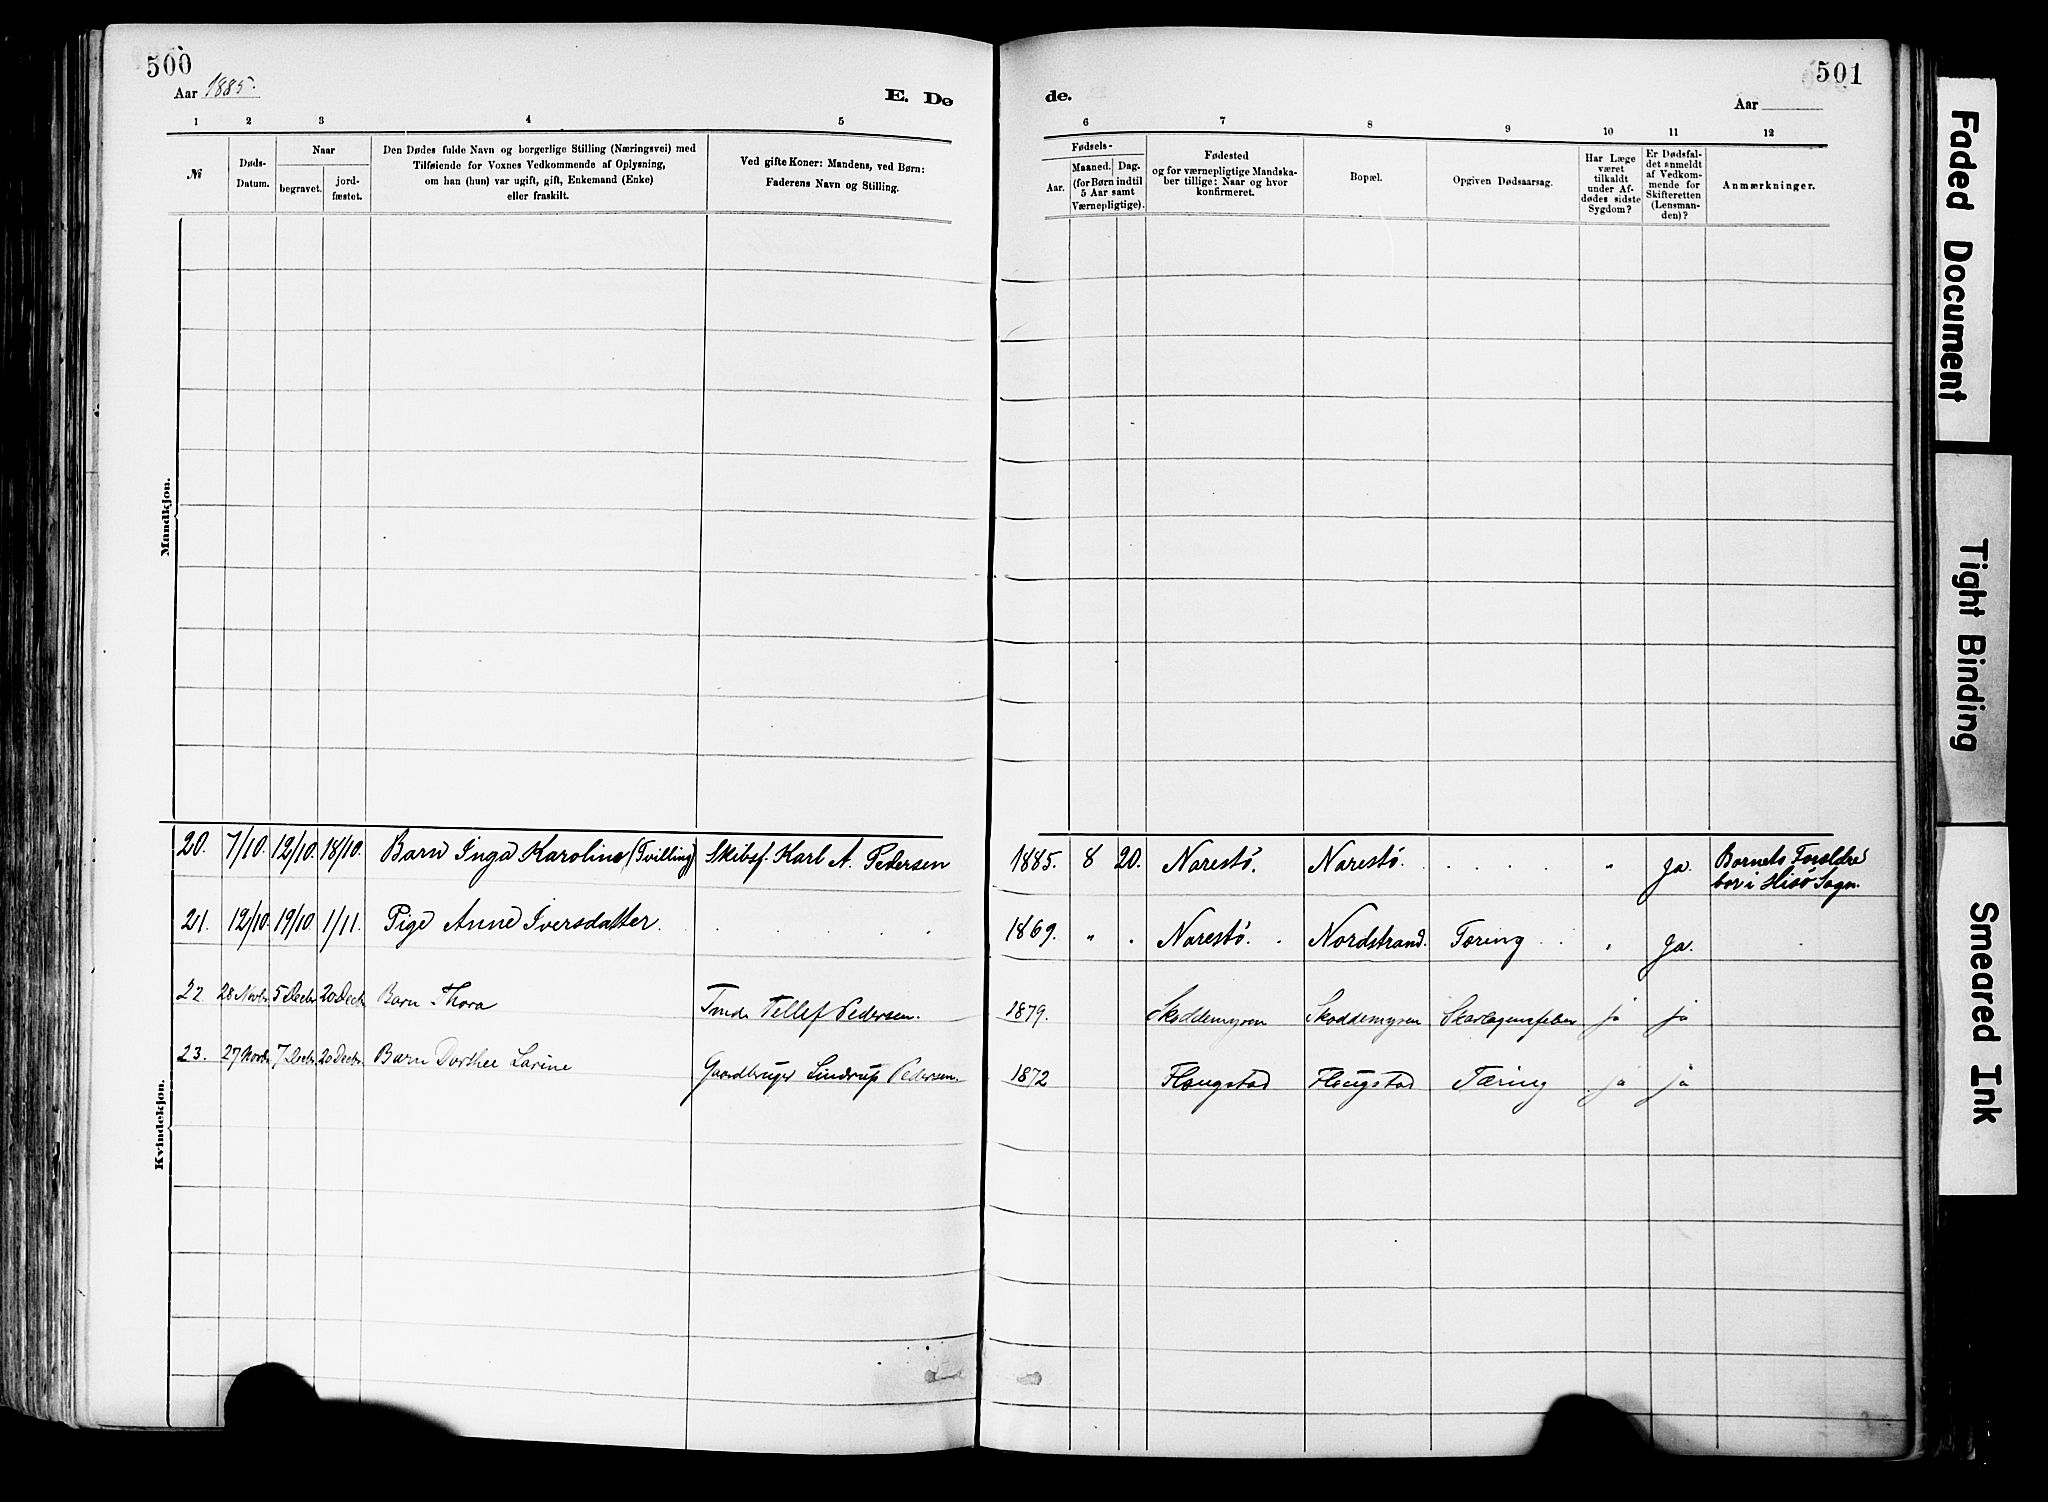 500
Aar 1885.
E. Dø
1 2 3 4 5
№
Døds-
Datum.
Naar
begravet.
jord-
fæstet.
Den Dødes fulde Navn og borgerlige Stilling (Næringsvei) med
Tilføiende for Voxnes Vedkommende af Oplysning,
om han (hun) var ugift, gift, Enkemand (Enke)
eller fraskilt.
Ved gifte Koner: Mandens, ved Børn:
Faderens Navn og Stilling.
Mandkjøn.
20. 7/10. 12/10. 18/10. Barn Inga Karoline (Tvilling) Skibsf. Karl A. Pedersen
21. 12/10. 19/10. 1/11. Pige Anne Iversdatter.
22. 28 Novbr 5 Decbr 20 Decbr Barn Thora Tmd. Tellef Pedersen.
23. 27 Novbr 7 Decbr 20 Decbr Barn Dorthee Larine Gaardbruger Lindrup Pedersen.
Kvindekjøn.
501
de.
Aar
6 7 8 9 10 11 12
Fødsels-
Aar.
Maaned. Dag.
(for Børn indtil
5 Aar samt
Værnepligtige).
Fødested
og for værnepligtige Mandska-
ber tillige: Naar og hvor
konfirmeret.
Bopæl.
Opgiven Dødsaarsag.
Har Læge
været
tilkaldt
under Af-
dødes sidste
Sygdom?
Er Dødsfal-
det anmeldt
af Vedkom-
mende for
Skifteretten
(Lensman-
den)?
Anmærkninger.
1885. 8 20. Narestø. Narestø. . . . . " Ja. Barnets Forældre
bor i Hisø Sogn.
1869. " . Narestø. . Nordstrand. Tæring . . " Ja.
1879. Skoddemyren Skoddemyren Skarlagensfeber ja ja
1872 Flougstad Flougstad Tæring ja ja
Faded Document
Tight Binding
Smeared Ink